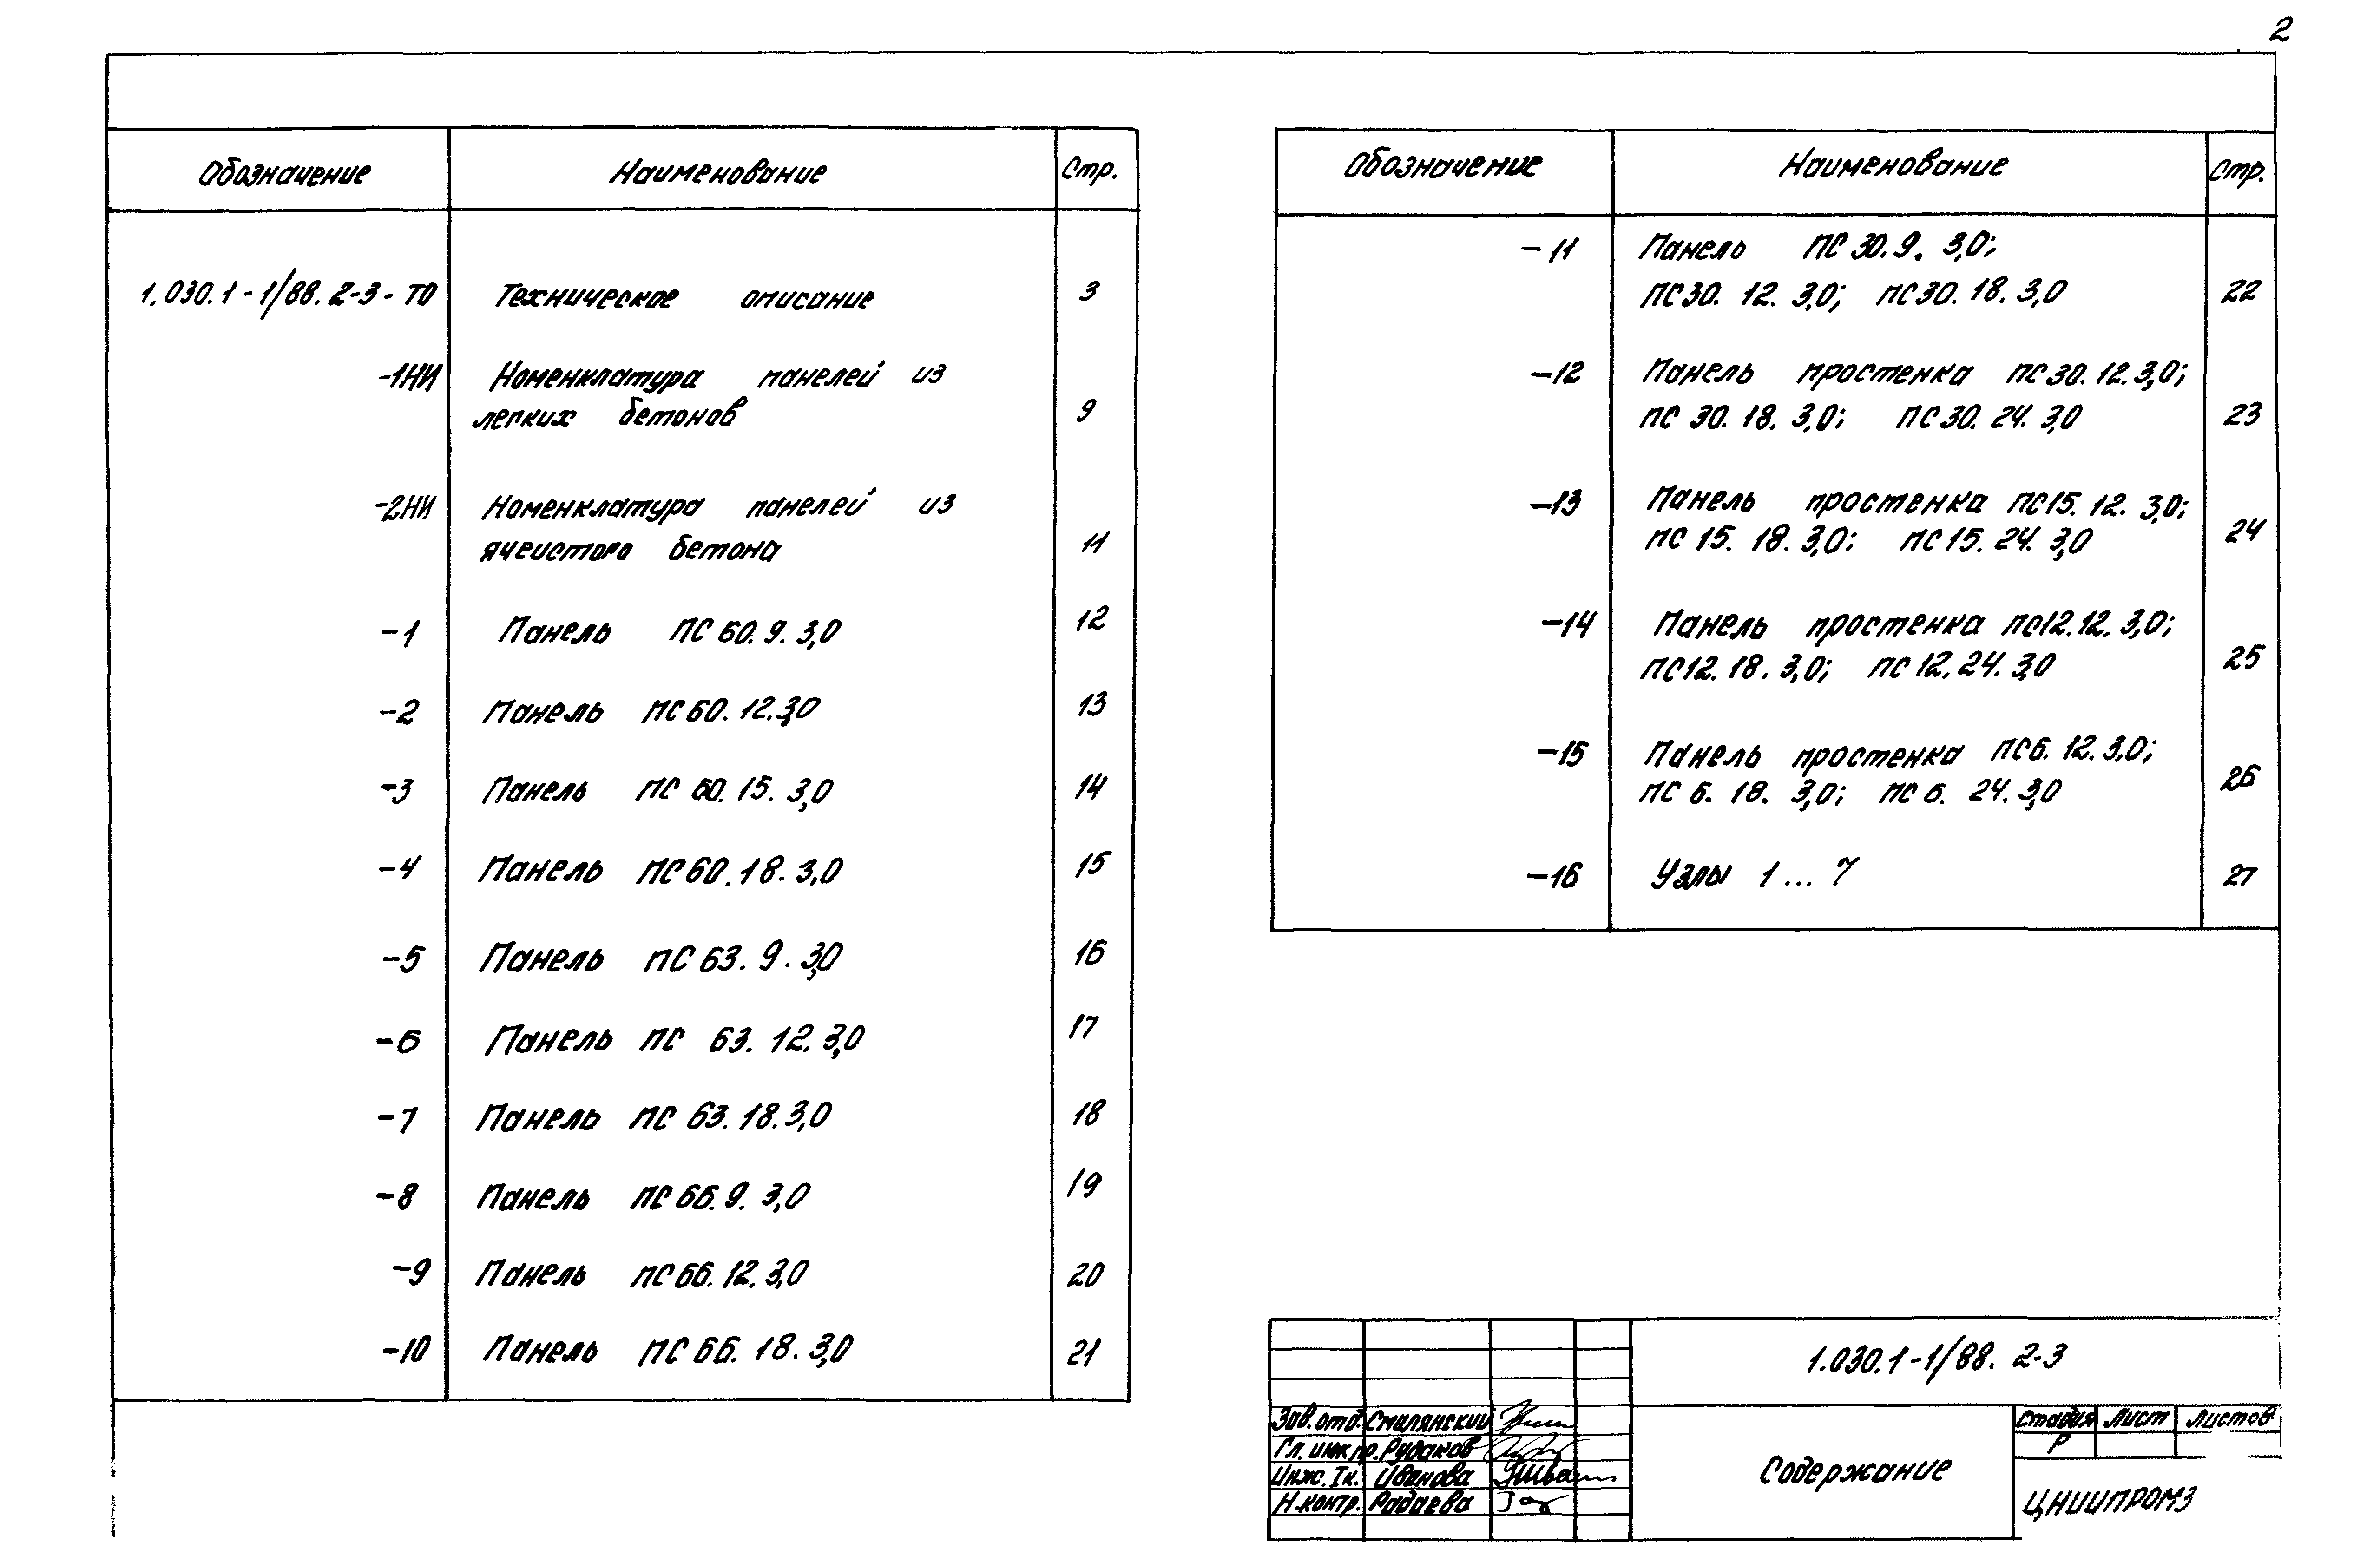 2
Обозначение Наименование Стр.
1.030.1-1/88.2-3-ТО Техническое описание 3
-1НИ Номенклатура панелей из
легких бетонов 9
-2НИ Номенклатура панелей из
ячеистого бетона 11
-1 Панель ПС 60.9.3,0 12
-2 Панель ПС 60.12.3,0 13
-3 Панель ПС 60.15.3,0 14
-4 Панель ПС 60.18.3,0 15
-5 Панель ПС 63.9.3,0 16
-6 Панель ПС 63.12.3,0 17
-7 Панель ПС 63.18.3,0 18
-8 Панель ПС 66.9.3,0 19
-9 Панель ПС 66.12.3,0 20
-10 Панель ПС 66.18.3,0 21
Обозначение Наименование Стр.
-11 Панель ПС 30.9.3,0;
ПС30.12.3,0; ПС30.18.3,0 22
-12 Панель простенка ПС30.12.3,0;
ПС 30.18.3,0; ПС30.24.3,0 23
-13 Панель простенка ПС15.12.3,0;
ПС 15.18.3,0; ПС15.24.3,0 24
-14 Панель простенка ПС12.12.3,0;
ПС12.18.3,0; ПС12.24.3,0 25
-15 Панель простенка ПС6.12.3,0;
ПС 6.18.3,0; ПС 6.24.3,0 26
-16 Узлы 1...7 27
1.030.1-1/88. 2-3
Зав.отд. Смилянский
Гл. инж.пр. Рудаков
Инж. Iк. Иванова
Н.контр. Радаева
Содержание
Стадия Лист Листов
Р
ЦНИИПРОМЗ